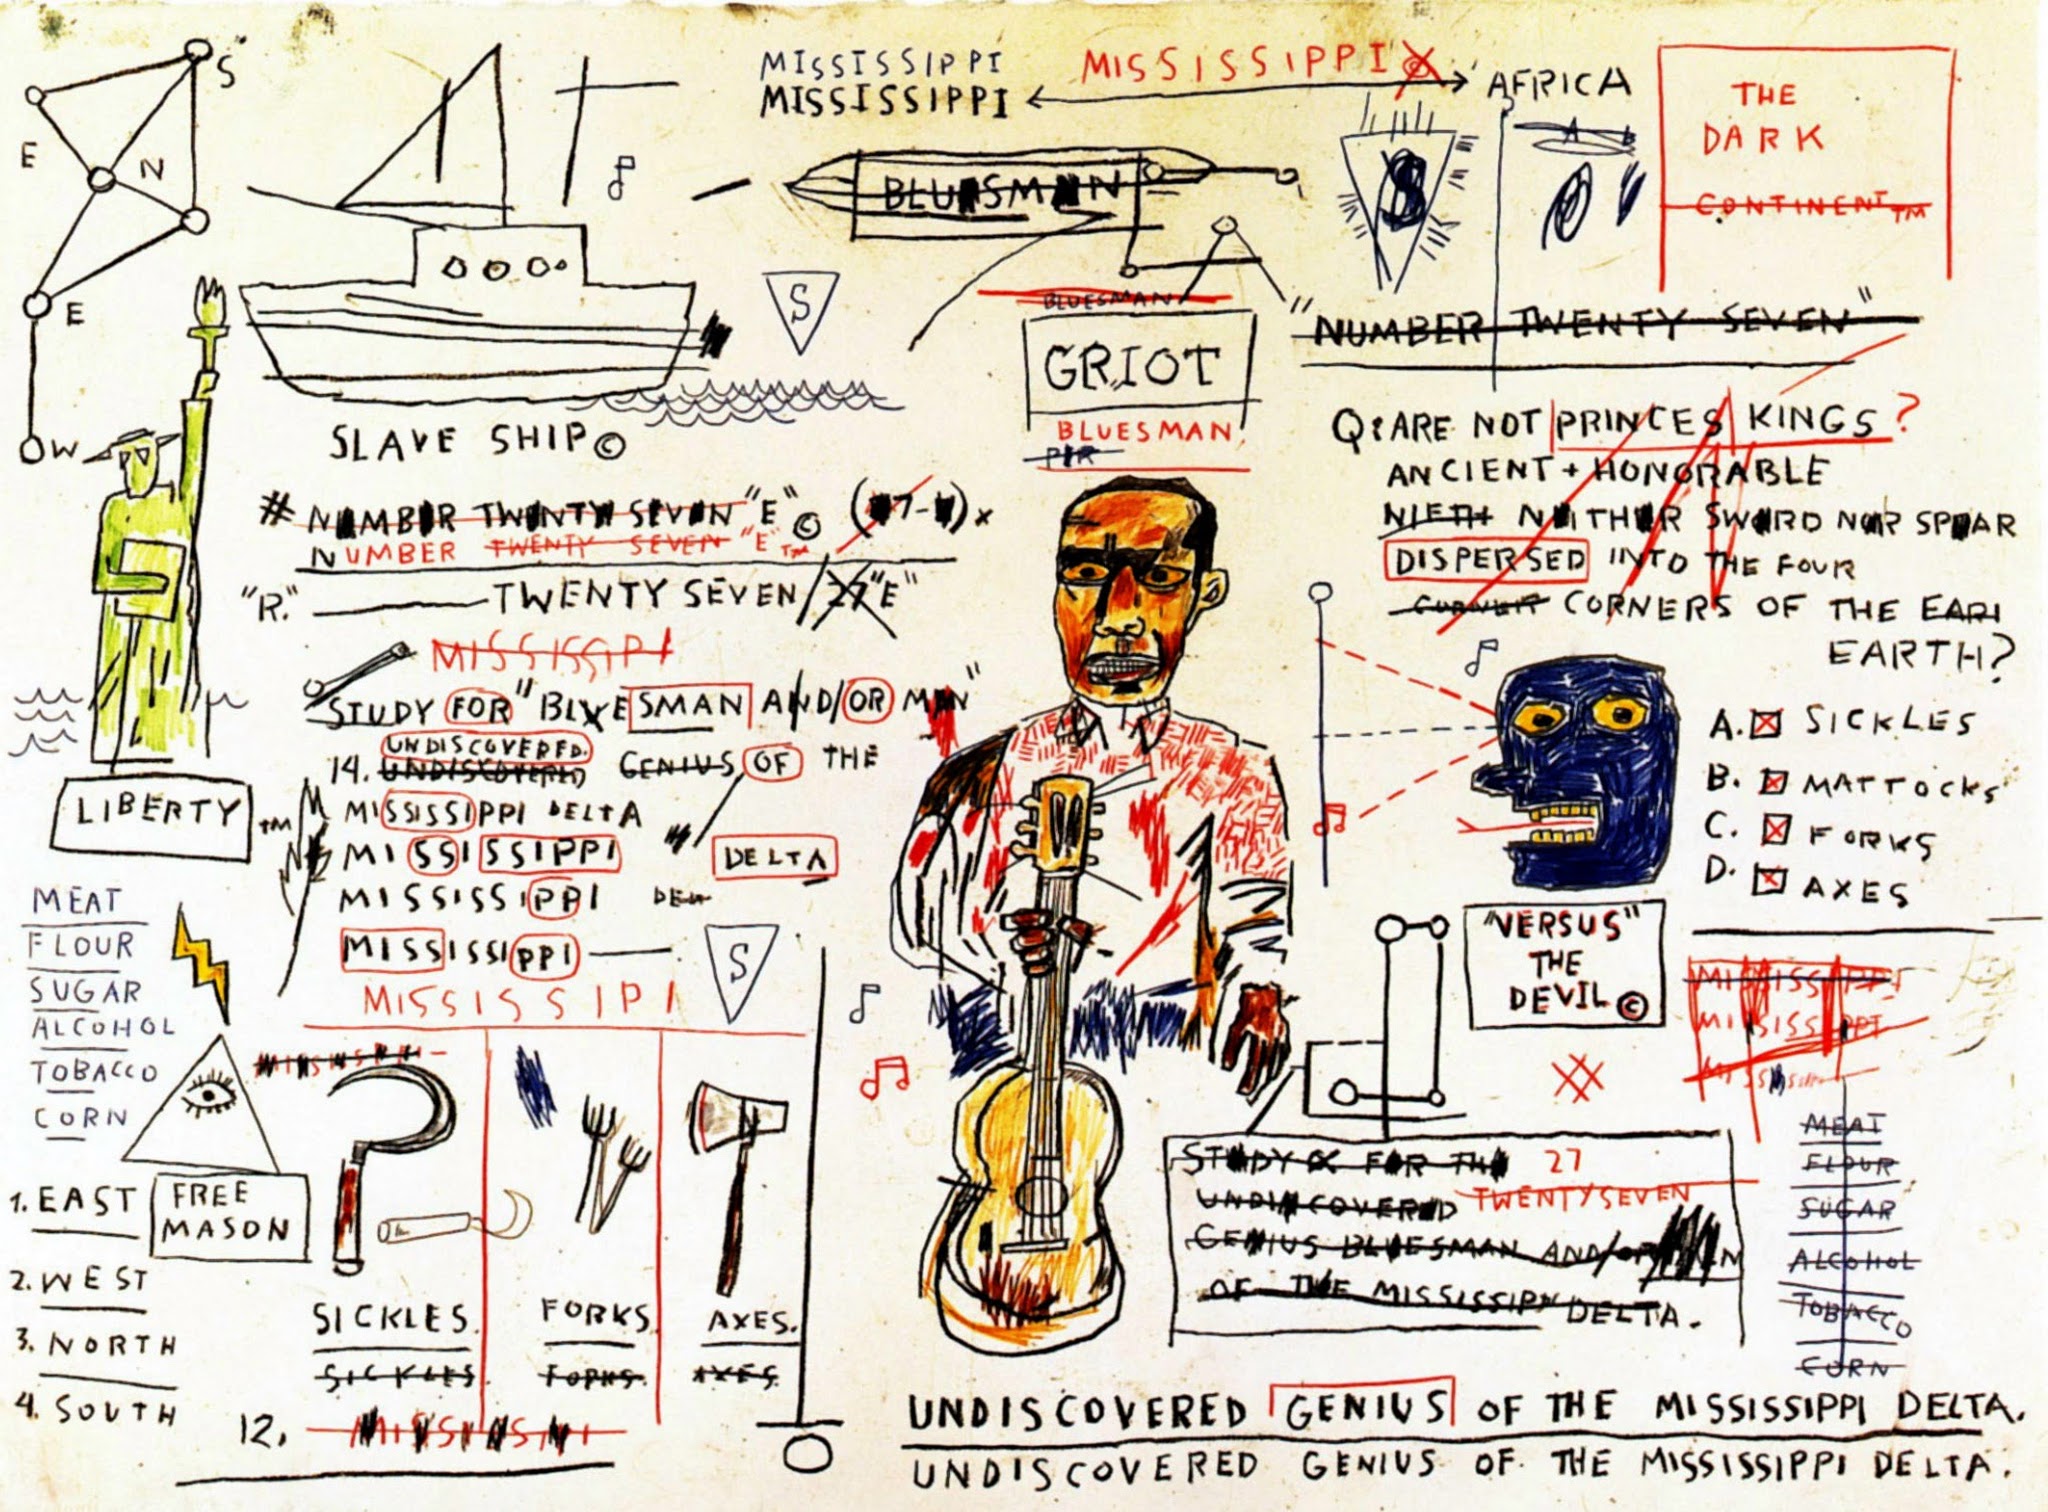 S
E
N
E
W
MISSISSIPPI
MISSISSIPPI
MISSISSIPPI
AFRICA
THE
DARK
CONTINENT™
BLUESMAN
S
A B
S
BLUESMAN
GRIOT
BLUESMAN.
"NUMBER TWENTY SEVEN"
SLAVE SHIP©
# NUMBER TWENTY SEVEN "E"©
NUMBER TWENTY SEVEN "E"™
"R." TWENTY SEVEN/27"E"
Q: ARE NOT PRINCES KINGS?
ANCIENT + HONORABLE
NIETH NEITHER SWORD NOR SPEAR
DISPERSED INTO THE FOUR
CORNERS OF THE EART
EARTH?
A. SICKLES
B. MATTOCKS
C. FORKS
D. AXES
MISSISSIPI
STUDY FOR "BLUESMAN AND/OR MAN"
UNDISCOVERED.
14. UNDISCOVERED GENIUS OF THE
MISSISSIPPI DELTA
MISSISSIPPI DELTA
MISSISSIPPI DELT
MISSISSIPPI
MISSISSIPI
S
LIBERTY™
MEAT
FLOUR
SUGAR
ALCOHOL
TOBACCO
CORN
FREE
MASON
1. EAST
2. WEST
3. NORTH
4. SOUTH
SICKLES.
SICKLES
FORKS
FORKS.
AXES.
AXES.
12.
"VERSUS"
THE
DEVIL©
MISSISSIPPI
MISSISSIPPI
STUDY FOR THE 27
UNDISCOVERED TWENTYSEVEN
GENIUS BLUESMAN AND/OR MAN
OF THE MISSISSIPPI DELTA.
MEAT
FLOUR
SUGAR
ALCOHOL
TOBACCO
CORN
UNDISCOVERED GENIUS OF THE MISSISSIPPI DELTA.
UNDISCOVERED GENIUS OF THE MISSISSIPPI DELTA.